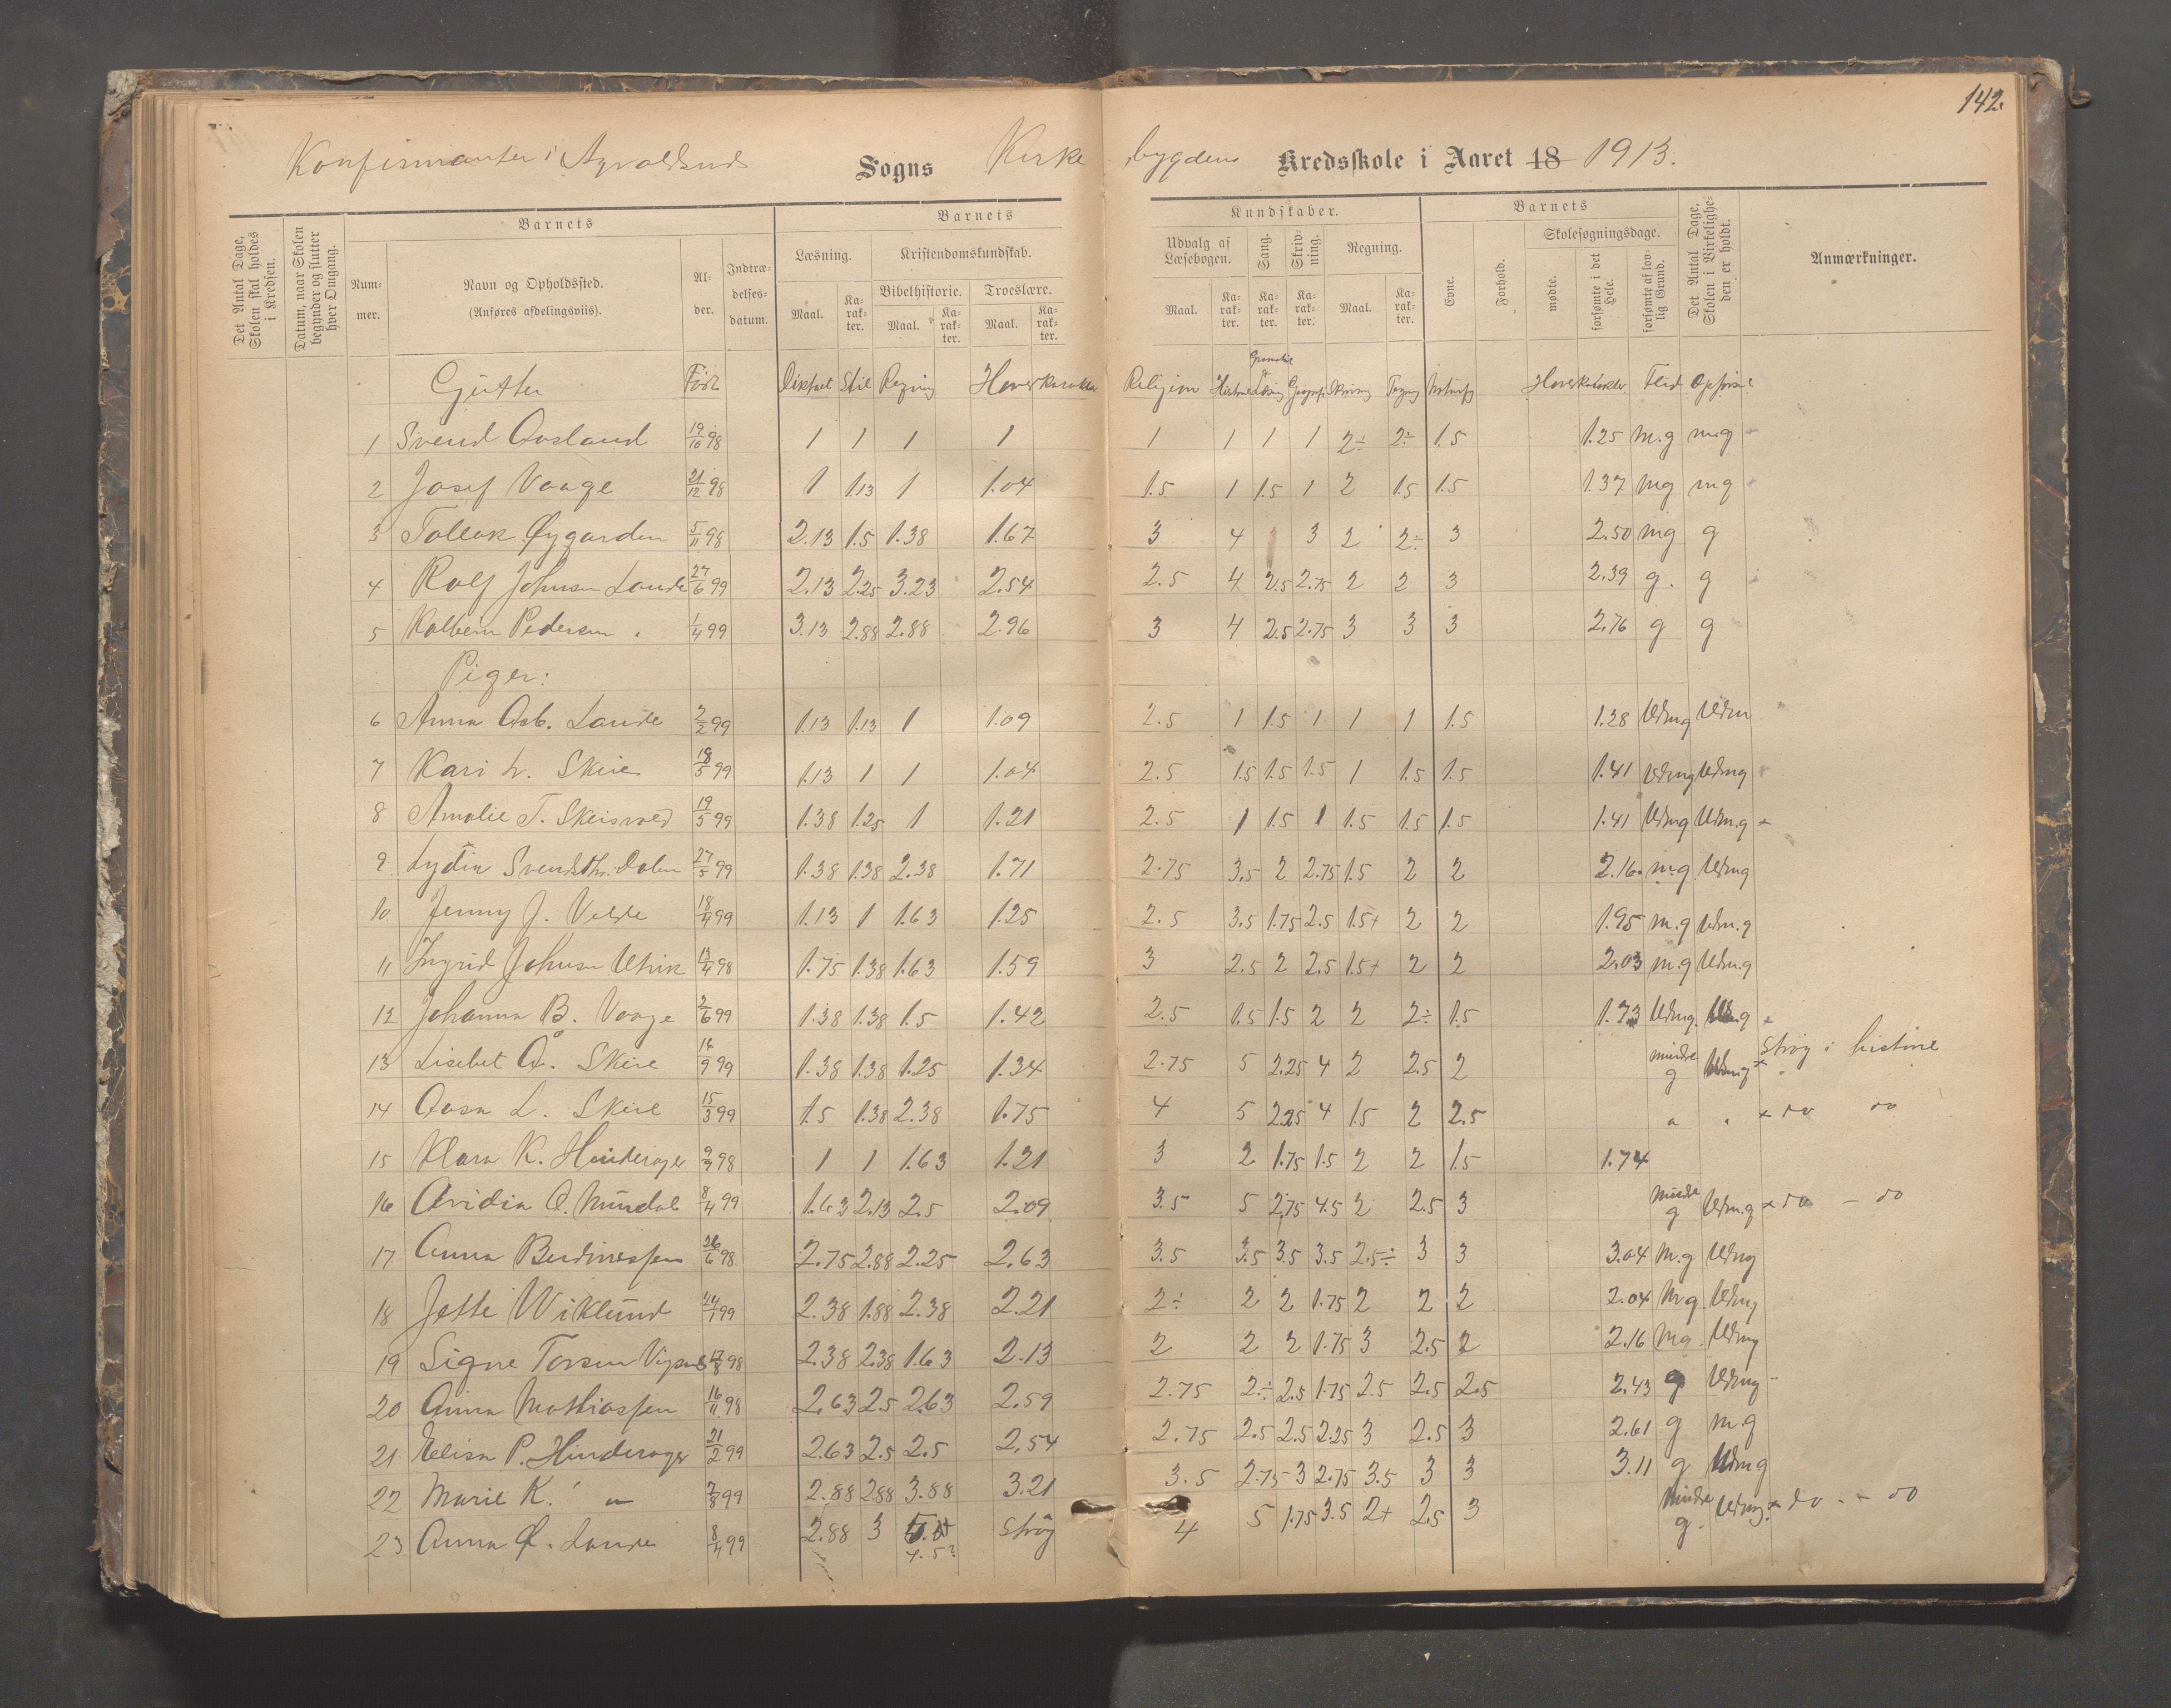 142
Konfirmanter i Avaldsnes Sogns Kirke bygdens Kredsskole i Aaret 18 1913.
Det Antal Dage, Skolen skal holdes i Kredsen.
Datum, naar Skolen begynder og slutter hver Omgang.
Barnets
Num-mer.
Navn og Opholdssted.
(Anføres afdelingsviis).
Al-der.
Indtræ-delses-datum.
Barnets
Læsning.
Maal.
Ka-rak-ter.
Kristendomskundskab.
Bibelhistorie.
Maal.
Ka-rak-ter.
Troeslære.
Maal.
Ka-rak-ter.
Kundskaber.
Udvalg af Læsebogen.
Maal.
Ka-rak-ter.
Sang.
Ka-rak-ter.
Skriv-ning.
Ka-rak-ter.
Regning.
Maal.
Ka-rak-ter.
Barnets
Evne.
Forhold.
Skolesøgningsdage.
mødte.
forsømte i det Hele.
forsømte af lov-lig Grund.
Det Antal Dage, Skolen i Virkelighe-den er holdt.
Anmærkninger.
Gutter Født Diktat Stil Regning Hovedkarakter Religion Historie Gramatik Læsning Geografi Skrivning Tegning Naturfg Hovedkarakter Flid Opførsel
1 Svend Aasland 19/10 98 1 1 1 1 1 1 1 1 2÷ 2÷ 1.5 1.25 m.g m.g
2 Josef Vaage 21/12 98 1 1.13 1 1.04 1.5 1 1.5 1 2 1.5 1.5 1.37 mg mg
3 Tollak Øygarden 5/11 98 2.13 1.5 1.38 1.67 3 4 3 2 2÷ 3 2.50 mg g
4 Rolf Johnsen Lande 27/6 99 2.13 2.25 3.23 2.54 2.5 4 2.5 2.75 2 2 3 2.39 g. g
5 Kolbein Pedersen 1/4 99 3.13 2.88 2.88 2.96 3 4 2.5 2.75 3 3 3 2.76 g g
Piger:
6 Anna Aab. Lande 2/2 99 1.13 1.13 1 1.09 2.5 1 1.5 1 1 1 1.5 1.28 Udmg Udm
7 Kari L. Skeie 18/5 99 1.13 1 1 1.04 2.5 1.5 1.5 1.5 1 1.5 1.5 1.41 Udmg Udmg
8 Amalie T. Skeisvold 19/5 99 1.38 1.25 1 1.21 2.5 1 1.5 1 1.5 1.5 1.5 1.41 Udmg Udm.g
9 Lydia Svendsthr. Dalen 27/5 99 1.38 1.38 2.38 1.71 2.75 3.5 2 2.75 1.5 2 2 2.16 m.g Udmg
10 Jenny J. Velde 18/4 99 1.13 1 1.63 1.25 2.5 3.5 1.75 2.5 1.5+ 2 2 1.95 m.g Udm.g
11 Ingrid Johnsen Utvik 13/4 98 1.75 1.38 1.63 1.59 3 2.5 2 2.5 1.5+ 2 2 2.03 m.g Udm.g
12 Johanna B. Vaage 2/6 99 1.38 1.38 1.5 1.42 2.5 1.5 1.5 2 2 2÷ 1.5 1.73 Udmg. Udm.g
13 Lisebet Å. Skeie 14/9 99 1.38 1.38 1.25 1.34 2.75 5 2.25 4 2 2.5 2 mindre g Udmg × Strøg i historie
14 Aasa L. Skeie 15/3 99 1.5 1.38 2.38 1.75 4 5 2.25 4 1.5 2 2.5 " " × do do
15 Klara K. Hinderager 9/7 98 1 1 1.63 1.21 3 2 1.75 1.5 2 2 1.5 1.74
16 Avidia O. Mundal 8/4 99 1.63 2.13 2.5 2.09 3.5 5 2.75 4.5 2 2.5 3 mindre g Udm.g × do - do
17 Anna Berdinessen 26/6 98 2.75 2.88 2.25 2.63 3.5 3.5 3.5 3.5 2.5÷ 3 3 3.04 M.g Udmg
18 Jette Wiklund 24/1 99 2.38 1.88 2.38 2.21 2÷ 2 2 1.75 2 2 2 2.04 M.g. Udmg
19 Signe Torsen Vigsnes 17/8 98 2.38 2.38 1.63 2.13 2 2 2 1.75 3 2.5 2 2.16 mg. Udmg
20 Anna Mathiassen 16/11 98 2.63 2.5 2.63 2.59 2.75 2÷ 2.5 1.75 2.5 2.5 2.5 2.43 g Udmg
21 Elisa P. Hinderager 21/2 99 2.63 2.5 2.5 2.54 2.75 2.5 2.5 2.25 3 2.5 3 2.61 g m.g
22 Marie K. " 7/8 99 2.88 2.88 3.88 3.21 3.5 2.75 3 2.75 3.5 3 3 3.11 g Udmg
23 Anna Ø. Lande 8/4 99 2.88 3 4.5? Strøg 4 5 1.75 3.5 2+ 2.5 3 mindre g. Udmg. × do - - do